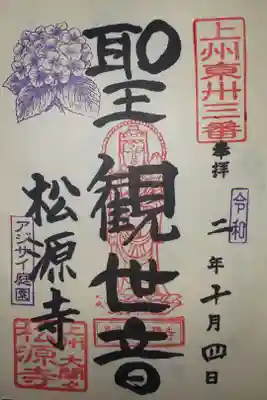 上州東卅三番
奉拝
令和
二年十月四日
聖観世音
松源寺
アジサイ庭園
上州大間々
松源寺